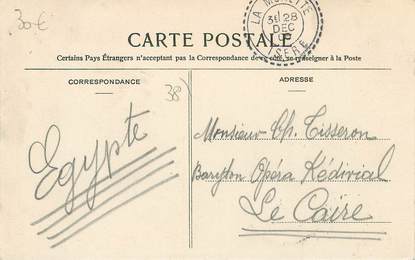 30 €
LA MURETTE
31 28
DEC
ISERE
CARTE POSTALE
Certains Pays Étrangers n'acceptant pas la Correspondance de ce côté, se renseigner à la Poste
CORRESPONDANCE
ADRESSE
38
Egypte
Monsieur Ch. Tisseron
Baryton Opéra Kédivial
Le Caire